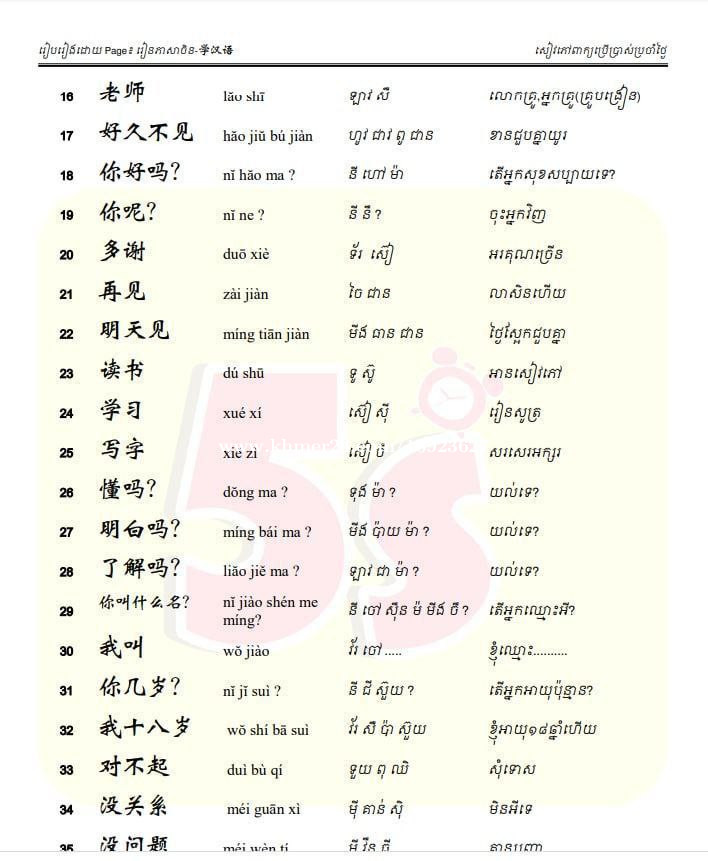 រៀបរៀងដោយ Page៖ រៀនភាសាចិន-学汉语 សៀវភៅពាក្យប្រើប្រាស់ប្រចាំថ្ងៃ
16 老师 lǎo shī ឡាវ សឺ លោកគ្រូ,អ្នកគ្រូ(គ្រូបង្រៀន)
17 好久不见 hǎo jiǔ bú jiàn ហូវ ជាវ ពូ ជាន ខានជួបគ្នាយូរ
18 你好吗? nǐ hǎo ma ? នី ហៅ ម៉ា តើអ្នកសុខសប្បាយទេ?
19 你呢? nǐ ne ? នី នឺ ? ចុះអ្នកវិញ
20 多谢 duō xiè ទ័រ ស៊ៀ អរគុណច្រើន
21 再见 zài jiàn ចៃ ជាន លាសិនហើយ
22 明天见 míng tiān jiàn មីង ធាន ជាន ថ្ងៃស្អែកជួបគ្នា
23 读书 dú shū ទូ ស៊ូ អានសៀវភៅ
24 学习 xué xí ស៊ៀ ស៊ី រៀនសូត្រ
25 写字 xiě zì ស៊ៀ ចឺ សរសេរអក្សរ
26 懂吗? dǒng ma ? ទុង ម៉ា ? យល់ទេ?
27 明白吗? míng bái ma ? មីង ប៉ាយ ម៉ា ? យល់ទេ?
28 了解吗? liǎo jiě ma ? ឡាវ ជា ម៉ា ? យល់ទេ?
29 你叫什么名? nǐ jiào shén me míng? នី ចៅ ស៊ិន ម៉ មីង ចឺ ? តើអ្នកឈ្មោះអី?
30 我叫 wǒ jiào វ័រ ចៅ ..... ខ្ញុំឈ្មោះ..........
31 你几岁? nǐ jǐ suì ? នី ជី ស៊ួយ ? តើអ្នកអាយុប៉ុន្មាន?
32 我十八岁 wǒ shí bā suì វ័រ សឺ ប៉ា ស៊ួយ ខ្ញុំអាយុ១៨ឆ្នាំហើយ
33 对不起 duì bù qí ទួយ ពុ ឈិ សុំទោស
34 没关系 méi guān xì ម៉ី គាន់ ស៊ិ មិនអីទេ
35 没问题 méi wèn tí ម៉ី វឺន ធី គ្មានបញ្ហា
5s